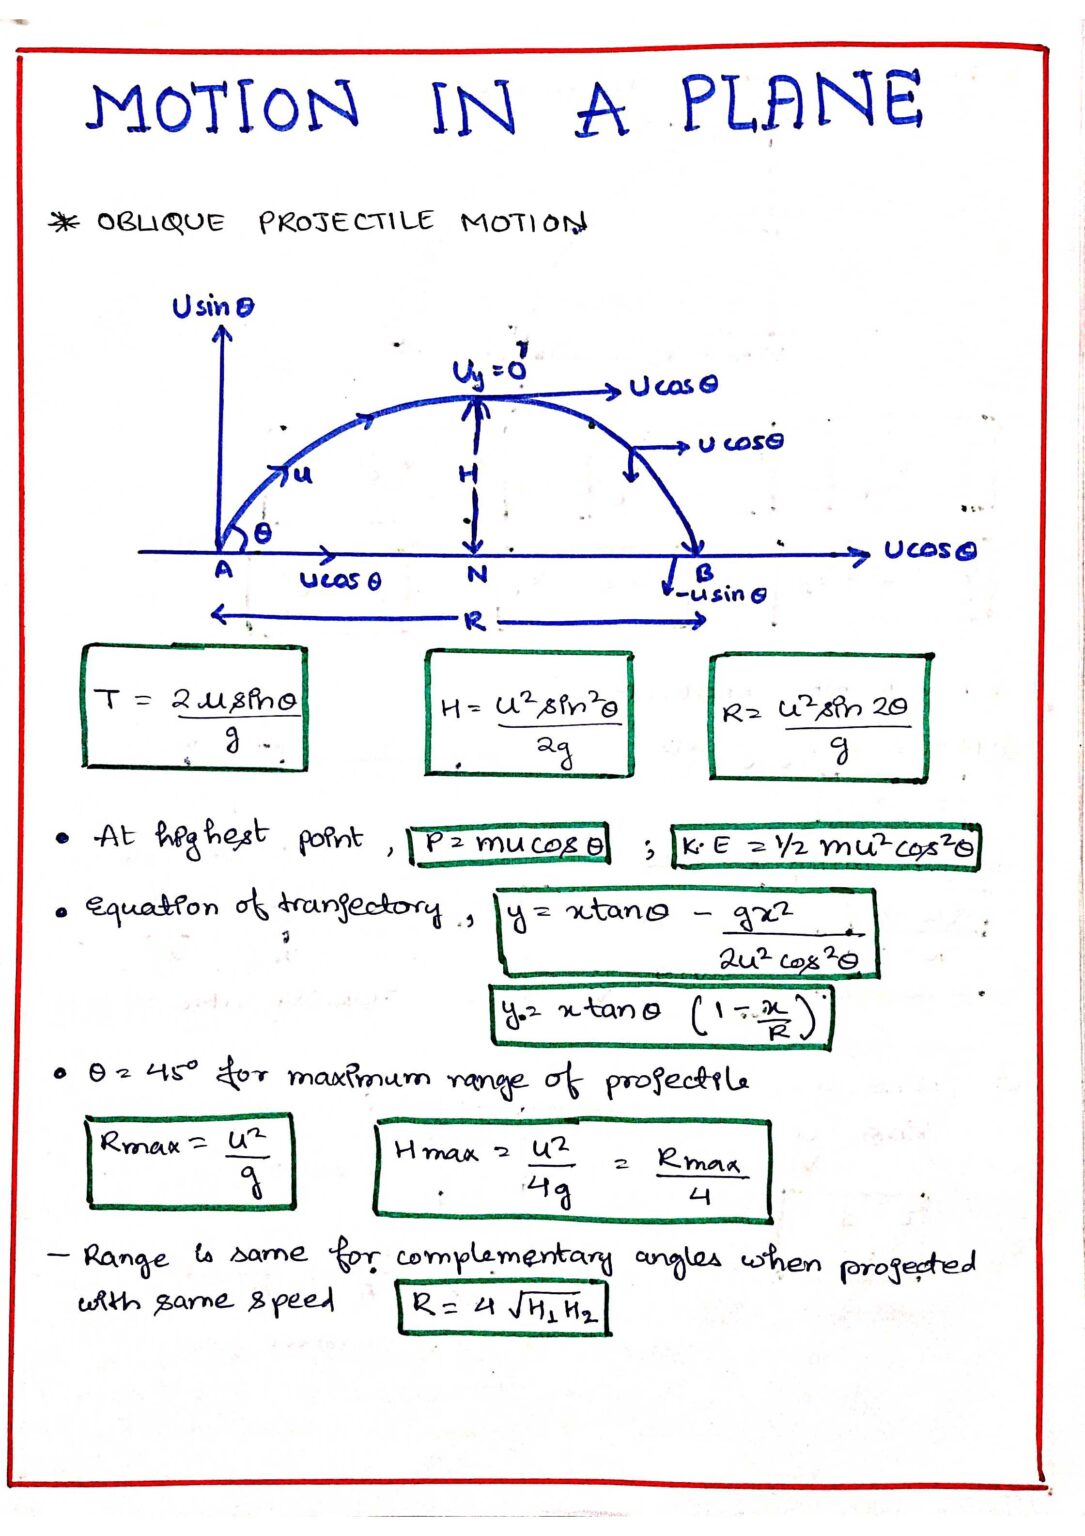 MOTION IN A PLANE
* OBLIQUE PROJECTILE MOTION
U sin θ
Uy = 0
U cos θ
U cos θ
u
H
θ
A
U cos θ
N
B
U cos θ
-u sin θ
R
T = 2u sin θ / g
H = u² sin² θ / 2g
R = u² sin 2θ / g
• At highest point, P = mu cos θ ; K.E = 1/2 mu² cos² θ
• Equation of tranjectory, y = x tan θ - gx² / 2u² cos² θ
y = x tan θ (1 - x/R)
• θ = 45° for maximum range of projectile
Rmax = u² / g
Hmax = u² / 4g = Rmax / 4
- Range is same for complementary angles when projected
with same speed R = 4 √H₁ H₂